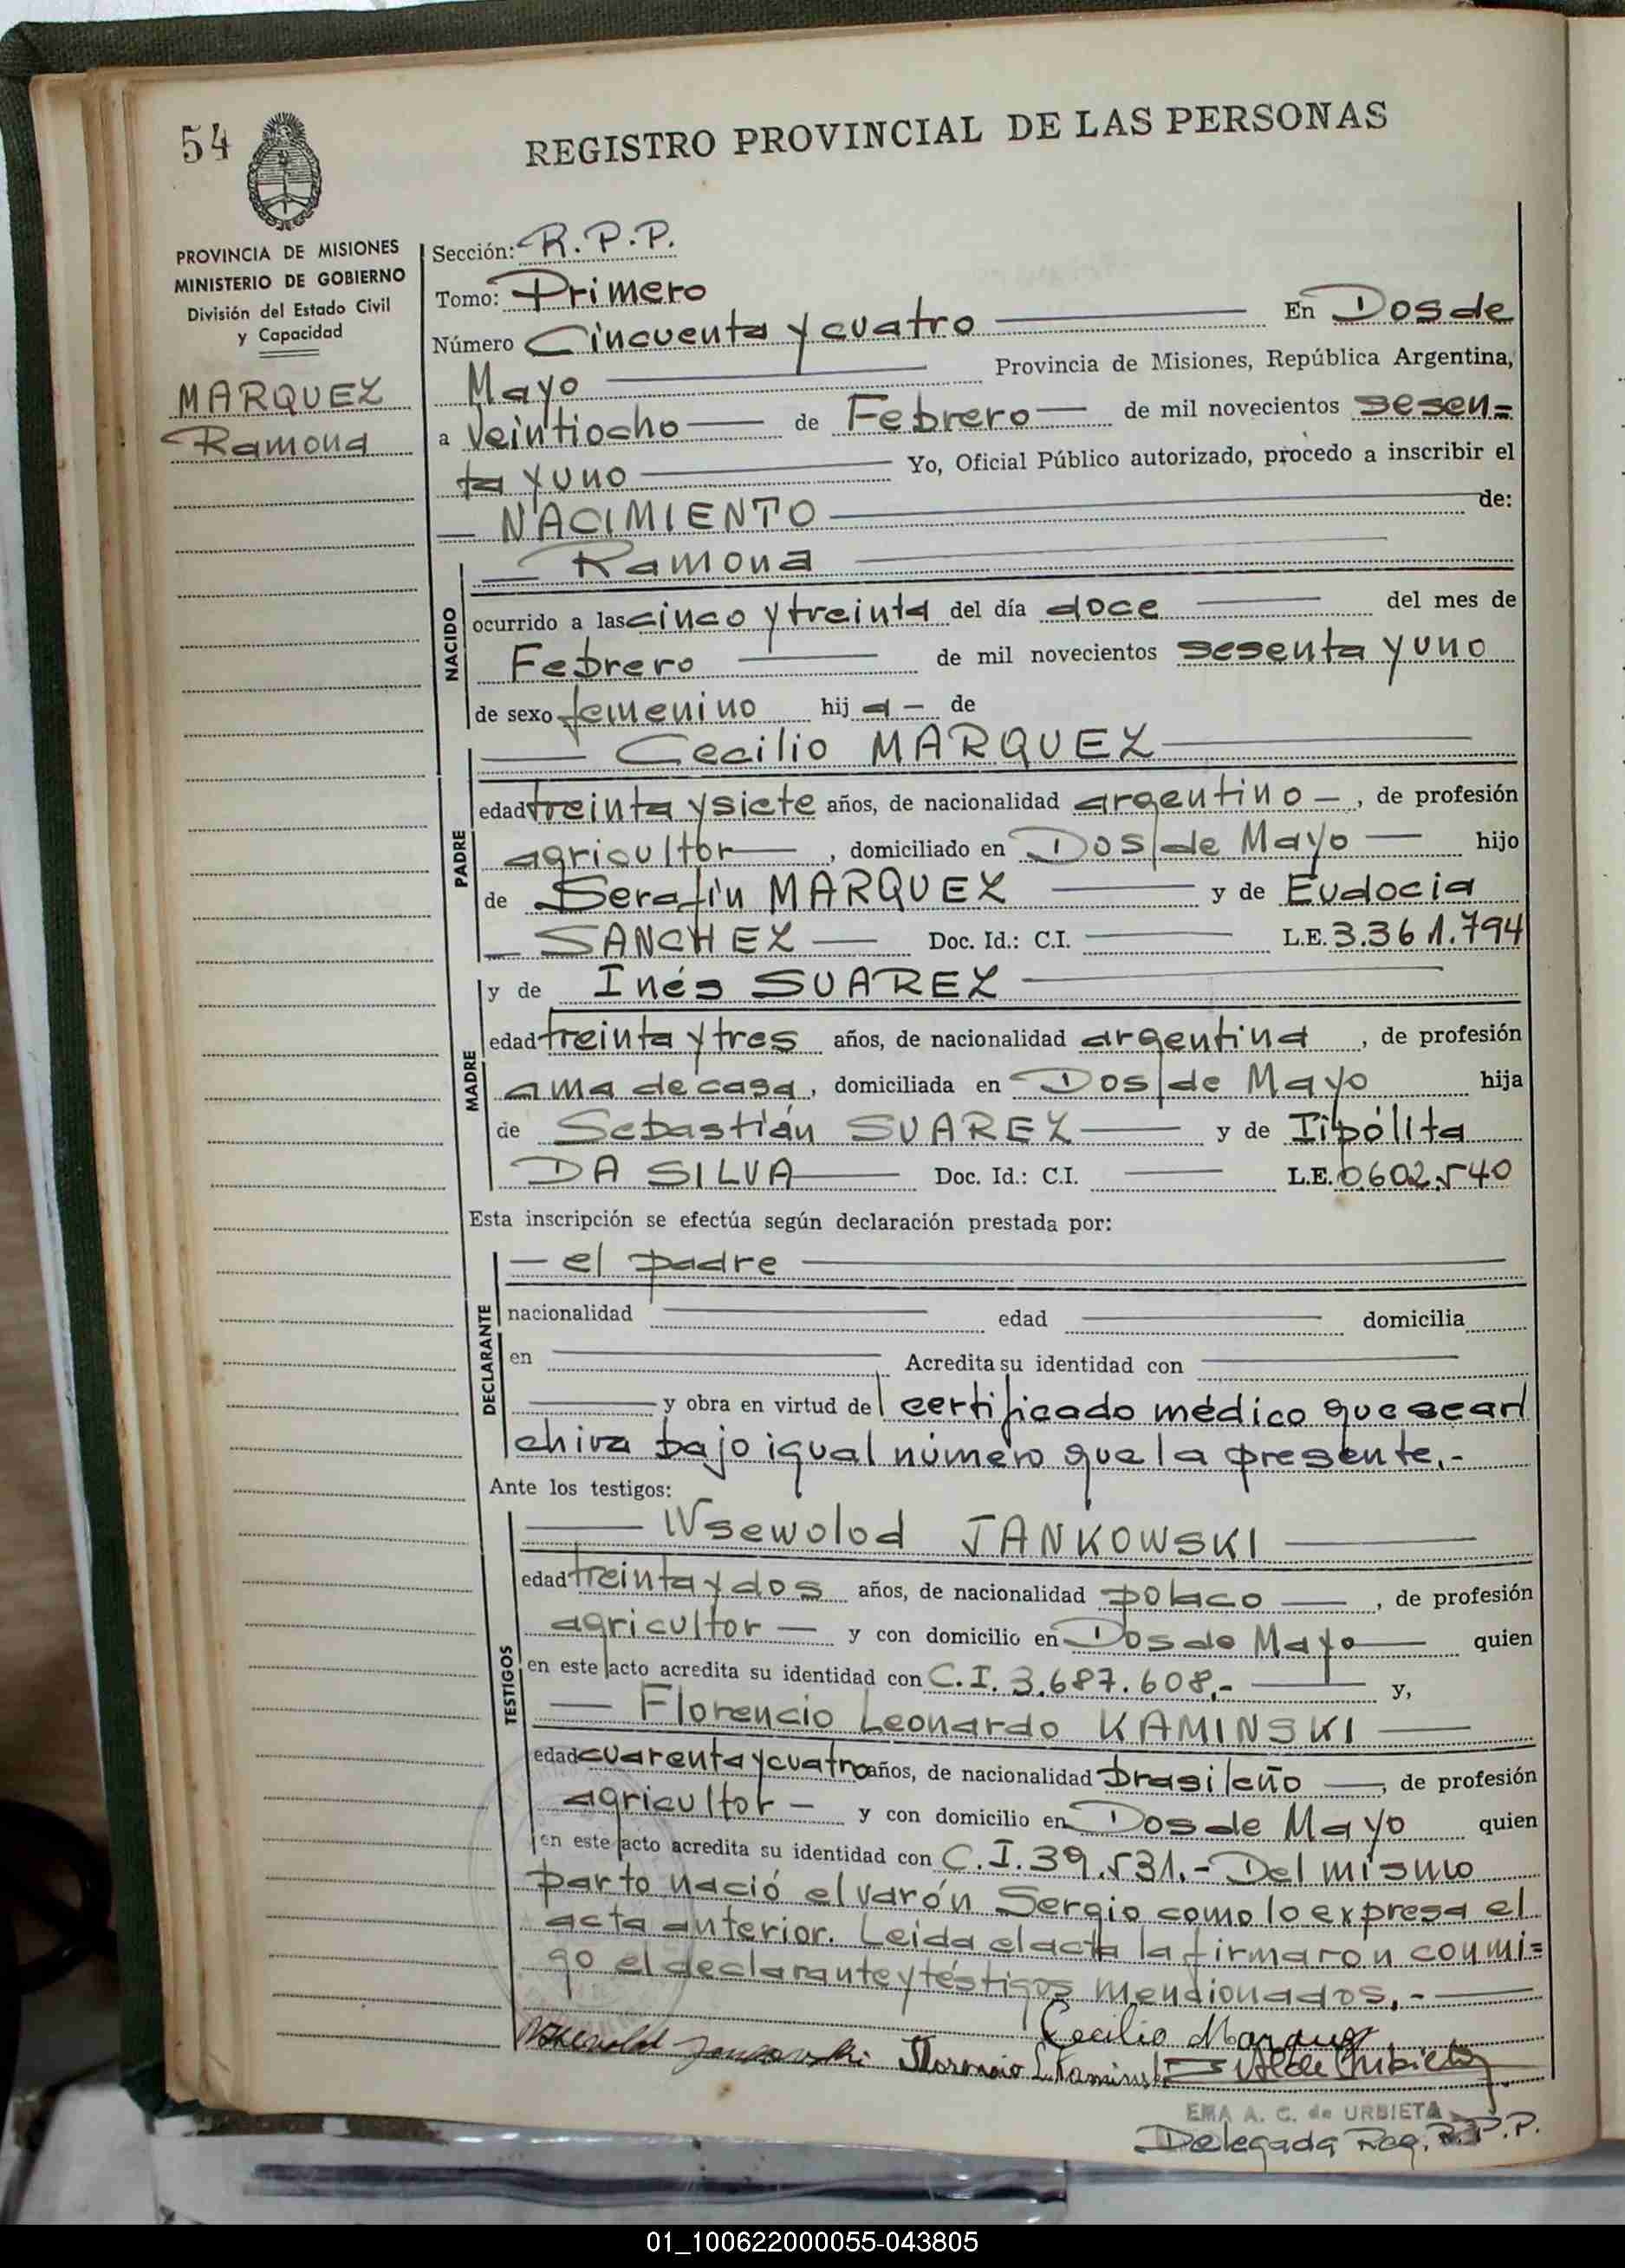 54
REGISTRO PROVINCIAL DE LAS PERSONAS
PROVINCIA DE MISIONES
MINISTERIO DE GOBIERNO
División del Estado Civil
y Capacidad
MARQUEZ
Ramona
Sección: R.P.P.
Tomo: Primero
Número Cincuenta y cuatro En Dos de
Mayo Provincia de Misiones, República Argentina,
a Veintiocho de Febrero de mil novecientos sesen=
ta y uno Yo, Oficial Público autorizado, procedo a inscribir el
NACIMIENTO de:
NACIDO
Ramona
ocurrido a las cinco y treinta del día doce del mes de
Febrero de mil novecientos sesenta y uno
de sexo femenino hij a - de
Cecilio MARQUEZ
PADRE
edad treinta y siete años, de nacionalidad argentino -, de profesión
agricultor, domiciliado en Dos de Mayo hijo
de Serafín MARQUEZ y de Eudocia
SANCHEZ Doc. Id.: C.I. L.E. 3.361.794
MADRE
y de Inés SUAREZ
edad treinta y tres años, de nacionalidad argentina, de profesión
ama de casa, domiciliada en Dos de Mayo hija
de Sebastián SUAREZ y de Iipólita
DA SILVA Doc. Id.: C.I. L.E. 0.602.540
Esta inscripción se efectúa según declaración prestada por:
DECLARANTE
el padre
nacionalidad edad domicilia
en Acredita su identidad con
y obra en virtud del certificado médico que se ar
chiva bajo igual número que la presente.-
Ante los testigos:
TESTIGOS
Wsewolod JANKOWSKI
edad treinta y dos años, de nacionalidad polaco, de profesión
agricultor - y con domicilio en Dos de Mayo quien
en este acto acredita su identidad con C.I. 3.687.608.- y,
Florencio Leonardo KAMINSKI
edad cuarenta y cuatro años, de nacionalidad brasileño, de profesión
agricultor - y con domicilio en Dos de Mayo quien
en este acto acredita su identidad con C.I. 39.531.- Del mismo
parto nació el varón Sergio como lo expresa el
acta anterior. Leida el acta la firmaron conmi=
go el declarante y testigos mencionados.-
Cecilio Marquez
EMA A. C. de URBIETA
Delegada Reg. R.P.P.
01_100622000055-043805